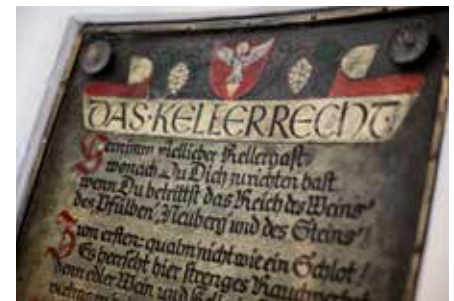 DAS·KELLERRECHT
Vernimm vielliebster Kellergast
wonach Du Dich zu richten hast
wenn Du betrittst das Reich des Weins
des Pfülben, Neuberg und des Steins!
Zum ersten: qualm nicht wie ein Schlot!
Es herrscht hier strenges Rauchverbot
denn edler Wein und